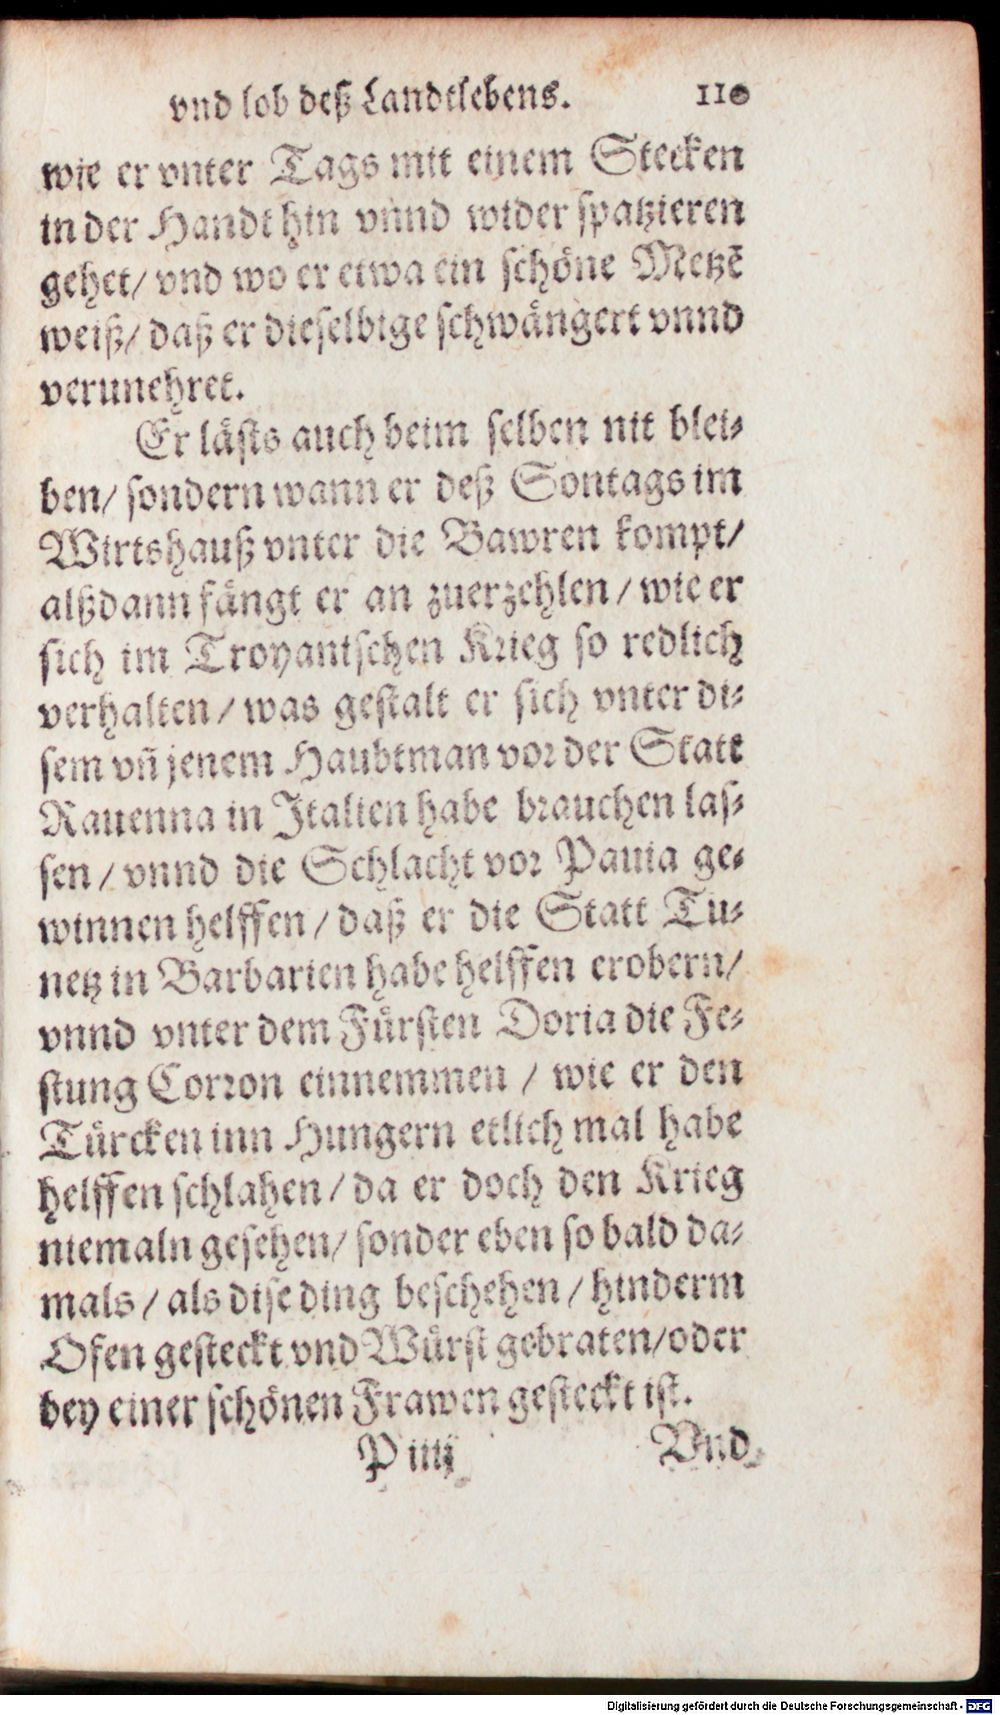 vnd lob deß Landtlebens. 110
wie er vnter Tags mit einem Stecken
in der Handt hin vnnd wider spatzieren
gehet/ vnd wo er etwa ein schöne Metzē
weiß/ daß er dieselbige schwängert vnnd
verunehret.
Er lästs auch beim selben nit blei-
ben/ sondern wann er deß Sontags im
Wirtshauß vnter die Bawren kompt/
alßdann fängt er an zuerzehlen / wie er
sich im Troyanischen Krieg so redlich
verhalten / was gestalt er sich vnter di-
sem vñ jenem Haubtman vor der Statt
Rauenna in Italien habe brauchen las-
sen / vnnd die Schlacht vor Pauia ge-
winnen helffen / daß er die Statt Tu-
netz in Barbarien habe helffen erobern/
vnnd vnter dem Fürsten Doria die Fe-
stung Corron einnemmen / wie er den
Türcken inn Hungern etlich mal habe
helffen schlahen / da er doch den Krieg
niemaln gesehen/ sonder eben so bald da-
mals / als dise ding beschehen / hinderm
Ofen gesteckt vnd Würst gebraten/oder
bey einer schönen Frawen gesteckt ist.
P iiij Vnd
Digitalisierung gefördert durch die Deutsche Forschungsgemeinschaft - DFG